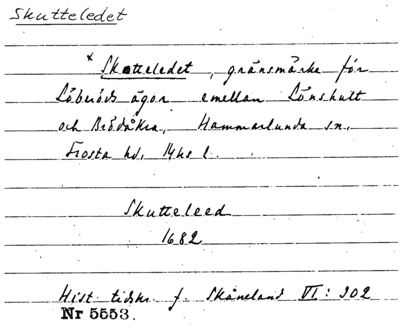 Skutteledet
x Skatteledet, gränsmärke för
Löberöds ägor emellan Lönshult
och Brödåkra, Hammarlunda sn,
Frosta hd, Mhs l.
Skutteleed
1682
Hist tidskr f Skåneland VI: 302
Nr 5553.